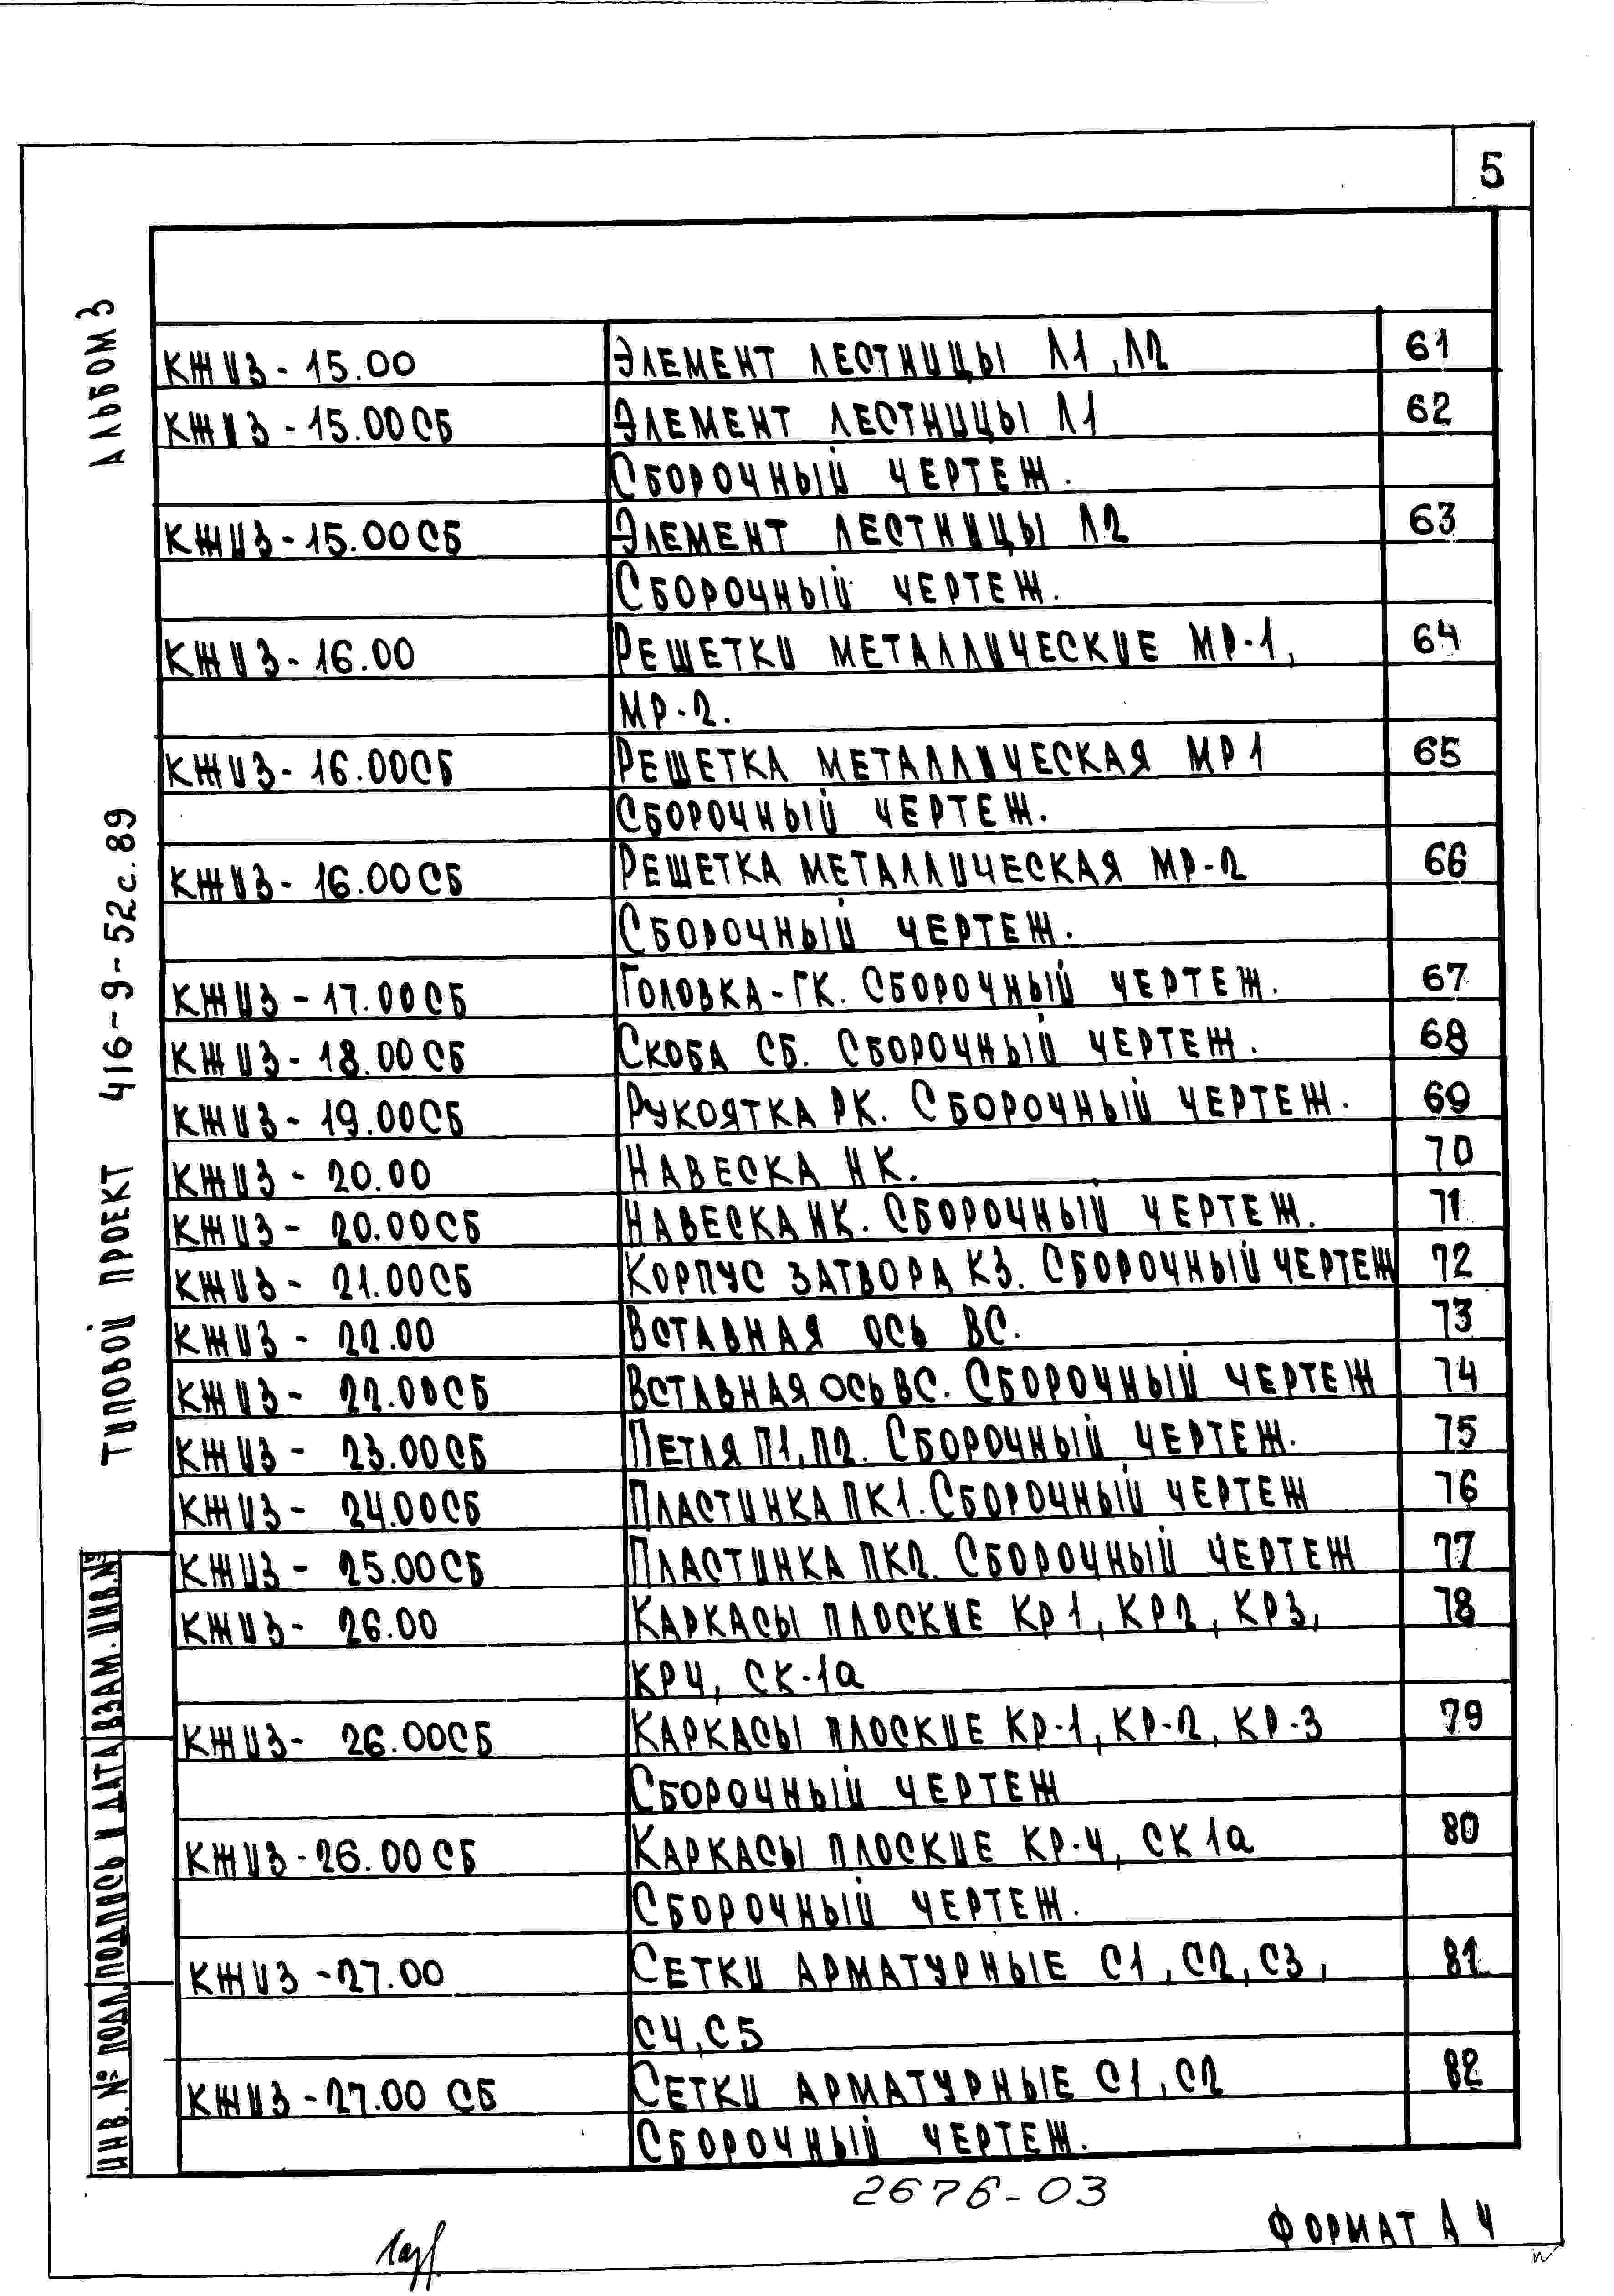 5
КЖИЗ-15.00 Элемент лестницы Л1, Л2 61
КЖИЗ-15.00СБ Элемент лестницы Л1 62
Сборочный чертеж.
КЖИЗ-15.00СБ Элемент лестницы Л2 63
Сборочный чертеж.
КЖИЗ-16.00 Решетки металлические МР-1, 64
МР-2.
КЖИЗ-16.00СБ Решетка металлическая МР1 65
Сборочный чертеж.
КЖИЗ-16.00СБ Решетка металлическая МР-2 66
Сборочный чертеж.
КЖИЗ-17.00СБ Головка-ГК. Сборочный чертеж. 67
КЖИЗ-18.00СБ Скоба СБ. Сборочный чертеж. 68
КЖИЗ-19.00СБ Рукоятка РК. Сборочный чертеж. 69
КЖИЗ-20.00 Навеска НК. 70
КЖИЗ-20.00СБ Навеска НК. Сборочный чертеж. 71
КЖИЗ-21.00СБ Корпус затвора КЗ. Сборочный чертеж 72
КЖИЗ-22.00 Вставная ось ВС. 73
КЖИЗ-22.00СБ Вставная ось ВС. Сборочный чертеж 74
КЖИЗ-23.00СБ Петля П1, П2. Сборочный чертеж. 75
КЖИЗ-24.00СБ Пластинка ПК1. Сборочный чертеж 76
КЖИЗ-25.00СБ Пластинка ПК2. Сборочный чертеж 77
КЖИЗ-26.00 Каркасы плоские Кр1, КР2, КР3, 78
КР4, СК-1а
КЖИЗ-26.00СБ Каркасы плоские Кр-1, КР-2, КР-3 79
Сборочный чертеж
КЖИЗ-26.00СБ Каркасы плоские КР-4, СК1а 80
Сборочный чертеж.
КЖИЗ-27.00 Сетки арматурные С1, С2, С3, 81
С4, С5
КЖИЗ-27.00 СБ Сетки арматурные С1, С2 82
Сборочный чертеж.
АЛЬБОМ 3
ТИПОВОЙ ПРОЕКТ 416-9-52с.89
ИНВ. № ПОДЛ. ПОДПИСЬ И ДАТА ВЗАМ. ИНВ. №
2676-03
ФОРМАТ А4